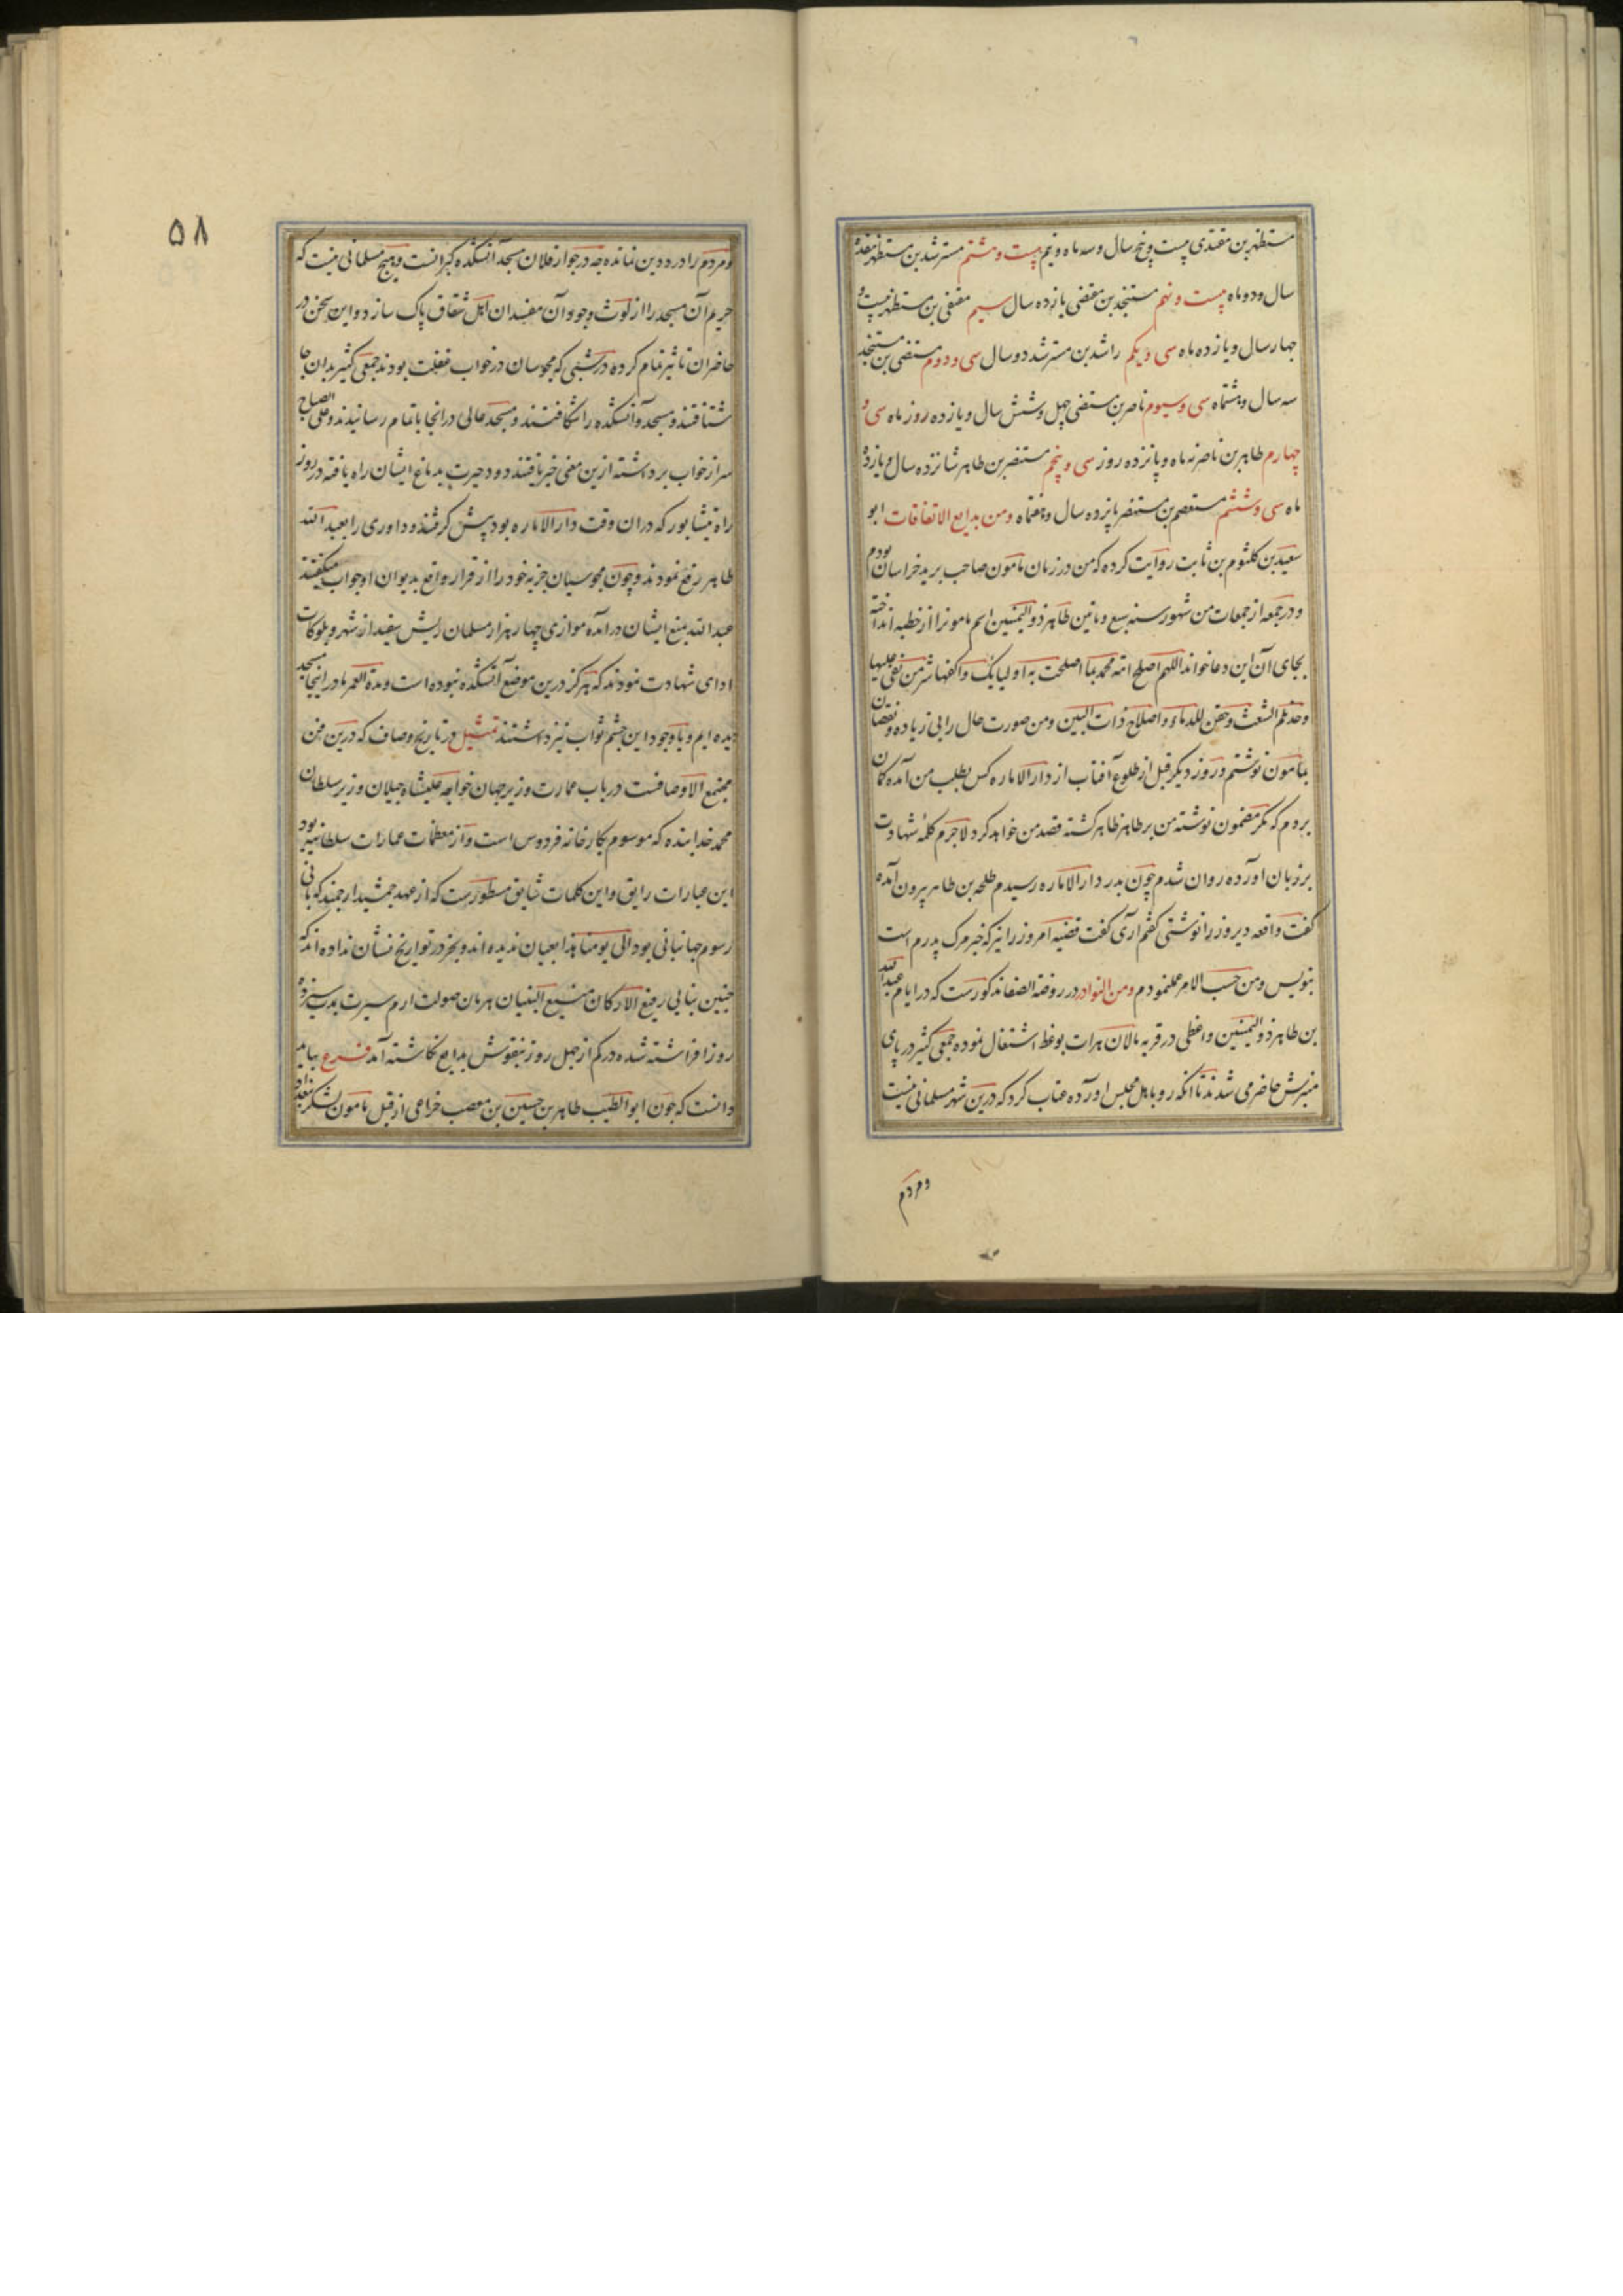 مستظهر بن مقتدی بیست و پنج سال و سه ماه و نیم بیست و هشتم مسترشد بن مستظهر هفده
سال و دو ماه بیست و نهم مستنجد بن مقتفی یازده سال سیم مقتفی بن مستظهر بیست و
چهار سال و یازده ماه سی و یکم راشد بن مسترشد دو سال سی و دوم مستضی بن مستنجد
سه سال و هشتماه سی و سیوم ناصر بن مستضی چهل و شش سال و یازده روز ماه سی و
چهارم طاهر بن ناصر نه ماه و پانزده روز سی و پنجم مستنصر بن طاهر شانزده سال و یازده
ماه سی و ششم مستعصم بن مستنصر پانزده سال و هفتماه ومن بدایع الاتفاقات ابو
سعید بن کلثوم بن ثابت روایت کرده که من در زمان مامون صاحب برید خراسان بودم
و در جمعه از جمعات من شهور سنه سبع و مأتین طاهر ذو الیمنین اسم مامونرا از خطبه انداخته
بجای آن این دعا خواند اللهم اصلح امة محمد بما اصلحت به اولیایک واکفها شر من بغی علیها
و حد لم الشعث و حقن للدماء و اصلاح ذات البین و من صورت حال را بی زیاده و نقصان
بمامون نوشتم و روز دیگر قبل از طلوع آفتاب از دار الاماره کس بطلب من آمده کمان
بردم که مکر مضمون نوشته من بر طاهر ظاهر کشته قصد من خواهد کرد لاجرم کلمه شهادت
بر زبان آورده روان شدم چون بدر دار الاماره رسیدم طلحه بن طاهر بیرون آمده
گفت واقعه دیروز را نوشتی گفتم آری گفت قضیه امروز را نیز که خبر مرک پدرم است
بنویس و من حسب الامر عملنمودم ومن النوادر در روضة الصفا مذکورست که در ایام عبد الله
بن طاهر ذو الیمنین واعظی در قریه مالان هرات بوعظ اشتغال نموده جمعی کثیر در پای
منبرش حاضر می شدند تا انکه رو باهل مجلس آورده عتاب کرد که درین شهر مسلمانی نیست
ومردم
۵۸
و مردم را درد دین نمانده چه در جوار فلان مسجد آتشکده کبرانست و هیچ مسلمانی نیست که
حریم آن مسجد را از لوث وجود آن مفسدان اهل شقاق پاک سازد و این سخن در
حاضران تاثیر تمام کرده در شبی که مجوسان در خواب غفلت بودند جمعی کثیر بدان جا
شتافتند و مسجد و آتشکده را شکافتند و مسجد عالی در انجا باتمام رسانیدند و علی الصباح
سر از خواب برداشته ازین معنی خبر یافتند دود حیرت بدماغ ایشان راه یافته در روز
راه نیشابور که در ان وقت دار الاماره بود پیش کرفتند و داوری را بعبد الله
طاهر رفع نمودند و چون مجوسیان جزیه خود را از قرار واقع بدیوان او جواب میکفتند
عبد الله بمنع ایشان درآمده موازی چهار هزار مسلمان ریش سفید از شهر و بلوکات
ادای شهادت نمودند که هرکز درین موضع آتشکده نبوده است و مدة العمر ما در اینجا مسجد
دیده ایم و با وجود این چشم ثواب نیز داشتند تمثیل در تاریخ وصاف که درین فن
مجتمع الاوصافست در باب عمارت وزیر جهان خواجه علیشاه جیلان وزیر سلطان
محمد خدابنده که موسوم بکارخانه فردوس است و از معظمات عمارات سلطانیه بود
این عبارات رایق و این کلمات شایق مسطورست که از عهد جمشید ارجمند که بانی
رسوم جهانبانی بود الی یومنا هذا بعیان ندیده اند و بخبر در تواریخ نشان نداده اند که
چنین بنایی رفیع الارکان منیع البنیان هرمان صولت ارم سیرت بمدت سیزده
روز افراشته شده در کم از چهل روز بنقوش بدایع نکاشته آمد فرع بباید
دانست که چون ابو الطیب طاهر بن حسین بن مصعب خزاعی از قبل مامون لشکر ببغداد